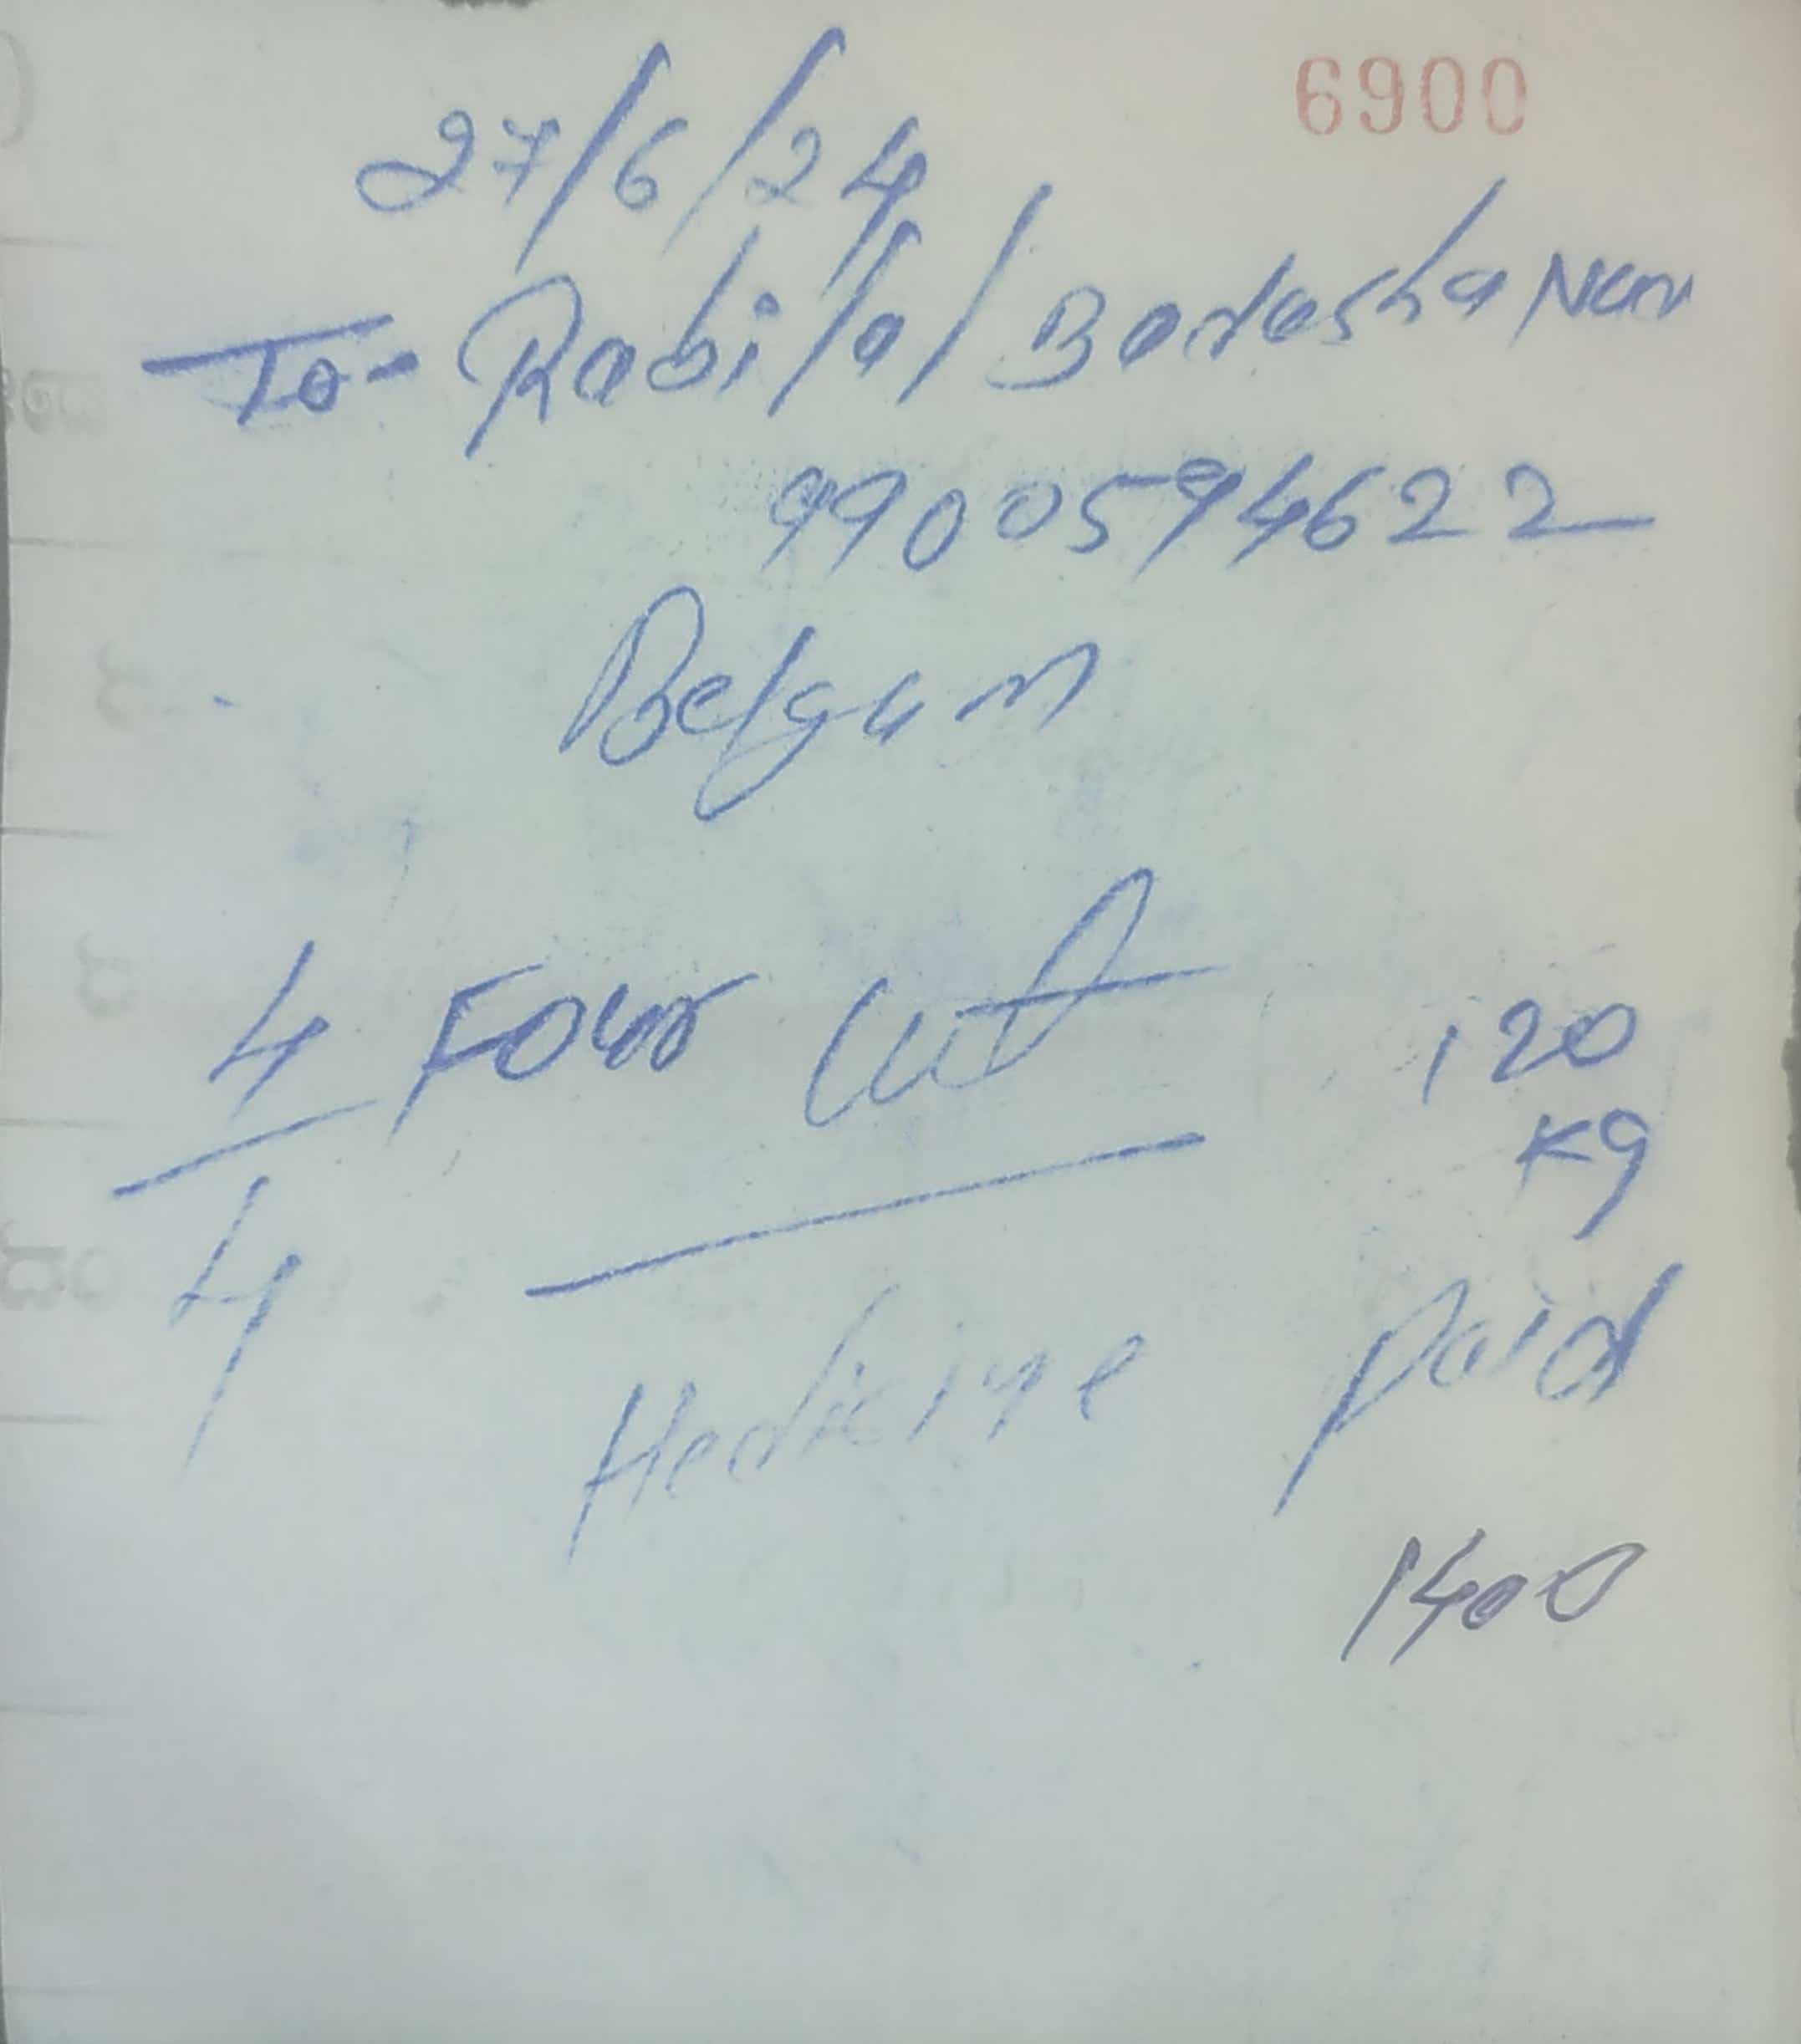 6900
27/6/24
To- Rabilal Badasha Nan
9900594622
Belgum
4 Four Cut 120
Kg
4
Hedicine Paid
1400